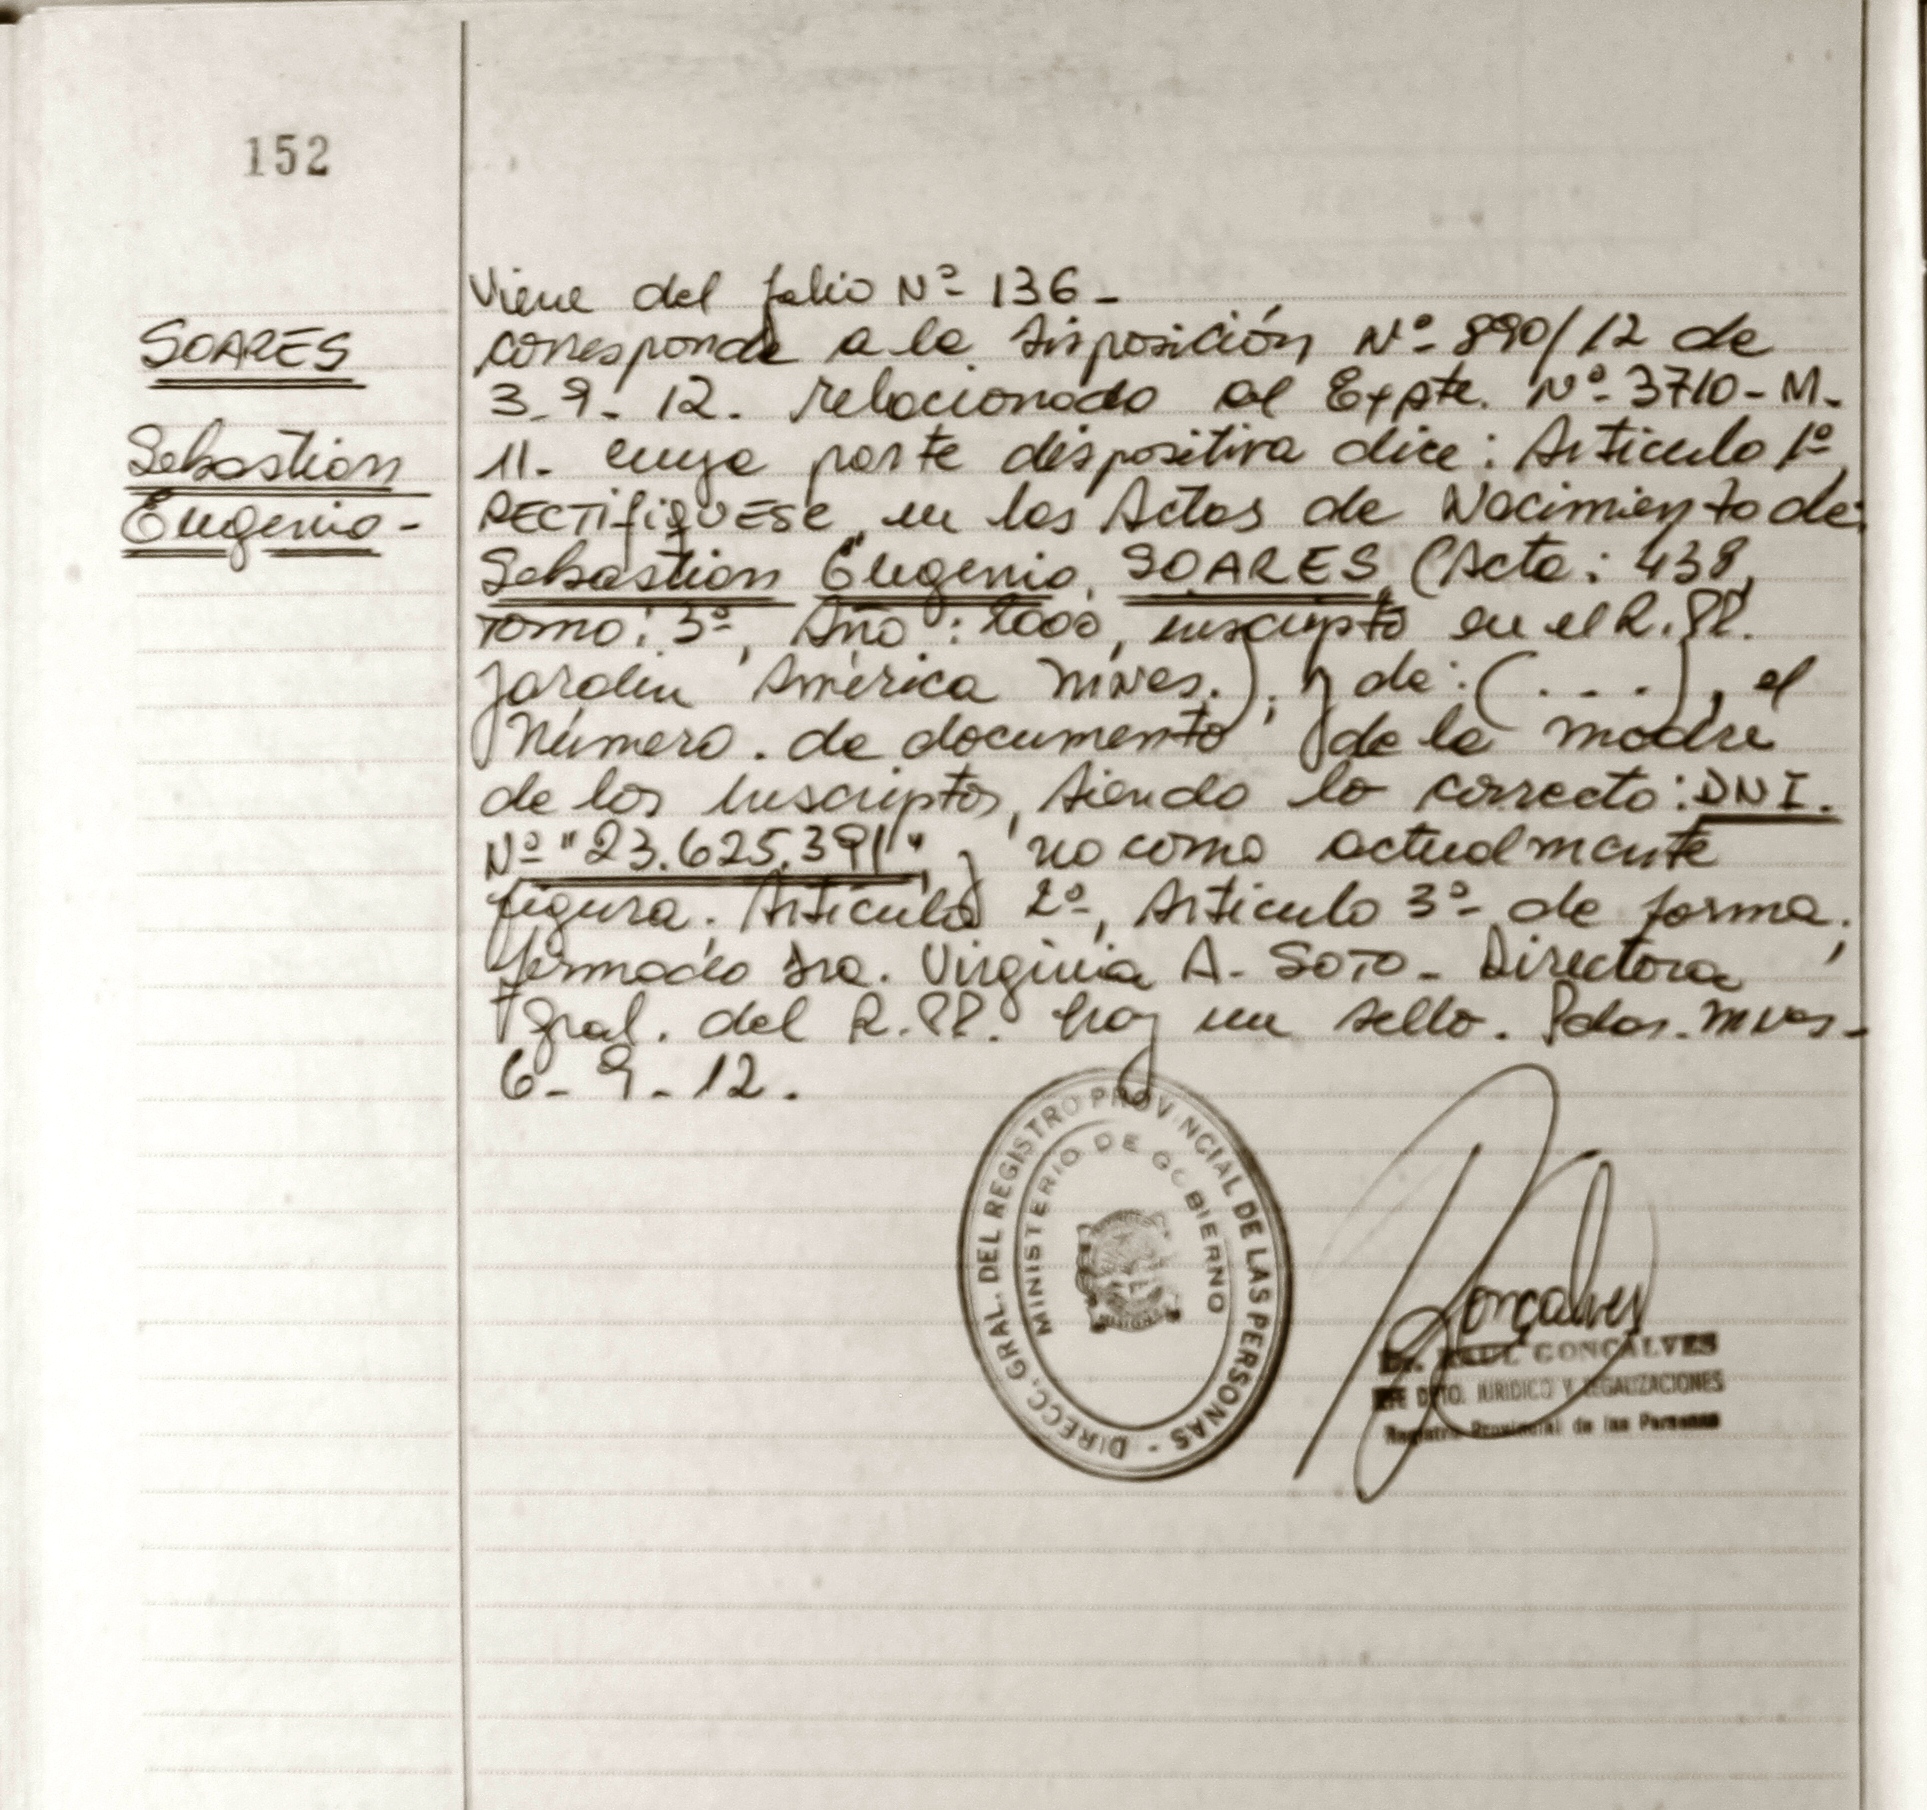 152
SOARES
Sebastian
Eugenio-
Viene del folio Nº- 136-
corresponde a la disposición Nº- 890/12 de
3-9-12. relacionado al Expte. Nº- 3710-M-
11- cuya parte dispositiva dice: Articulo 1º
RECTIFIQUESE, en las Actas de Nacimiento de:
Sebastian Eugenio, SOARES, (Acta: 438,
Tomo: 3º, Año: 2000, inscripto en el R.PP.
Jardin América Mnes.); y de: (...), el
Número. de documento de la madre
de los inscriptos, siendo lo correcto: DNI.
Nº "23.625.391" y no como actualmente
figura. Articulo 2º, Articulo 3º- de forma;
firmado Sra. Virginia A- SOTO- Directora
Gral. del R.PP. hay un sello. Pdas. Mnes-
6-9-12.
DIRECC. GRAL. DEL REGISTRO PROVINCIAL DE LAS PERSONAS -
MINISTERIO DE GOBIERNO
MISIONES
Gonçalves
Dr. RAUL GONÇALVES
JEFE DPTO. JURIDICO Y LEGALIZACIONES
Registro Provincial de las Personas